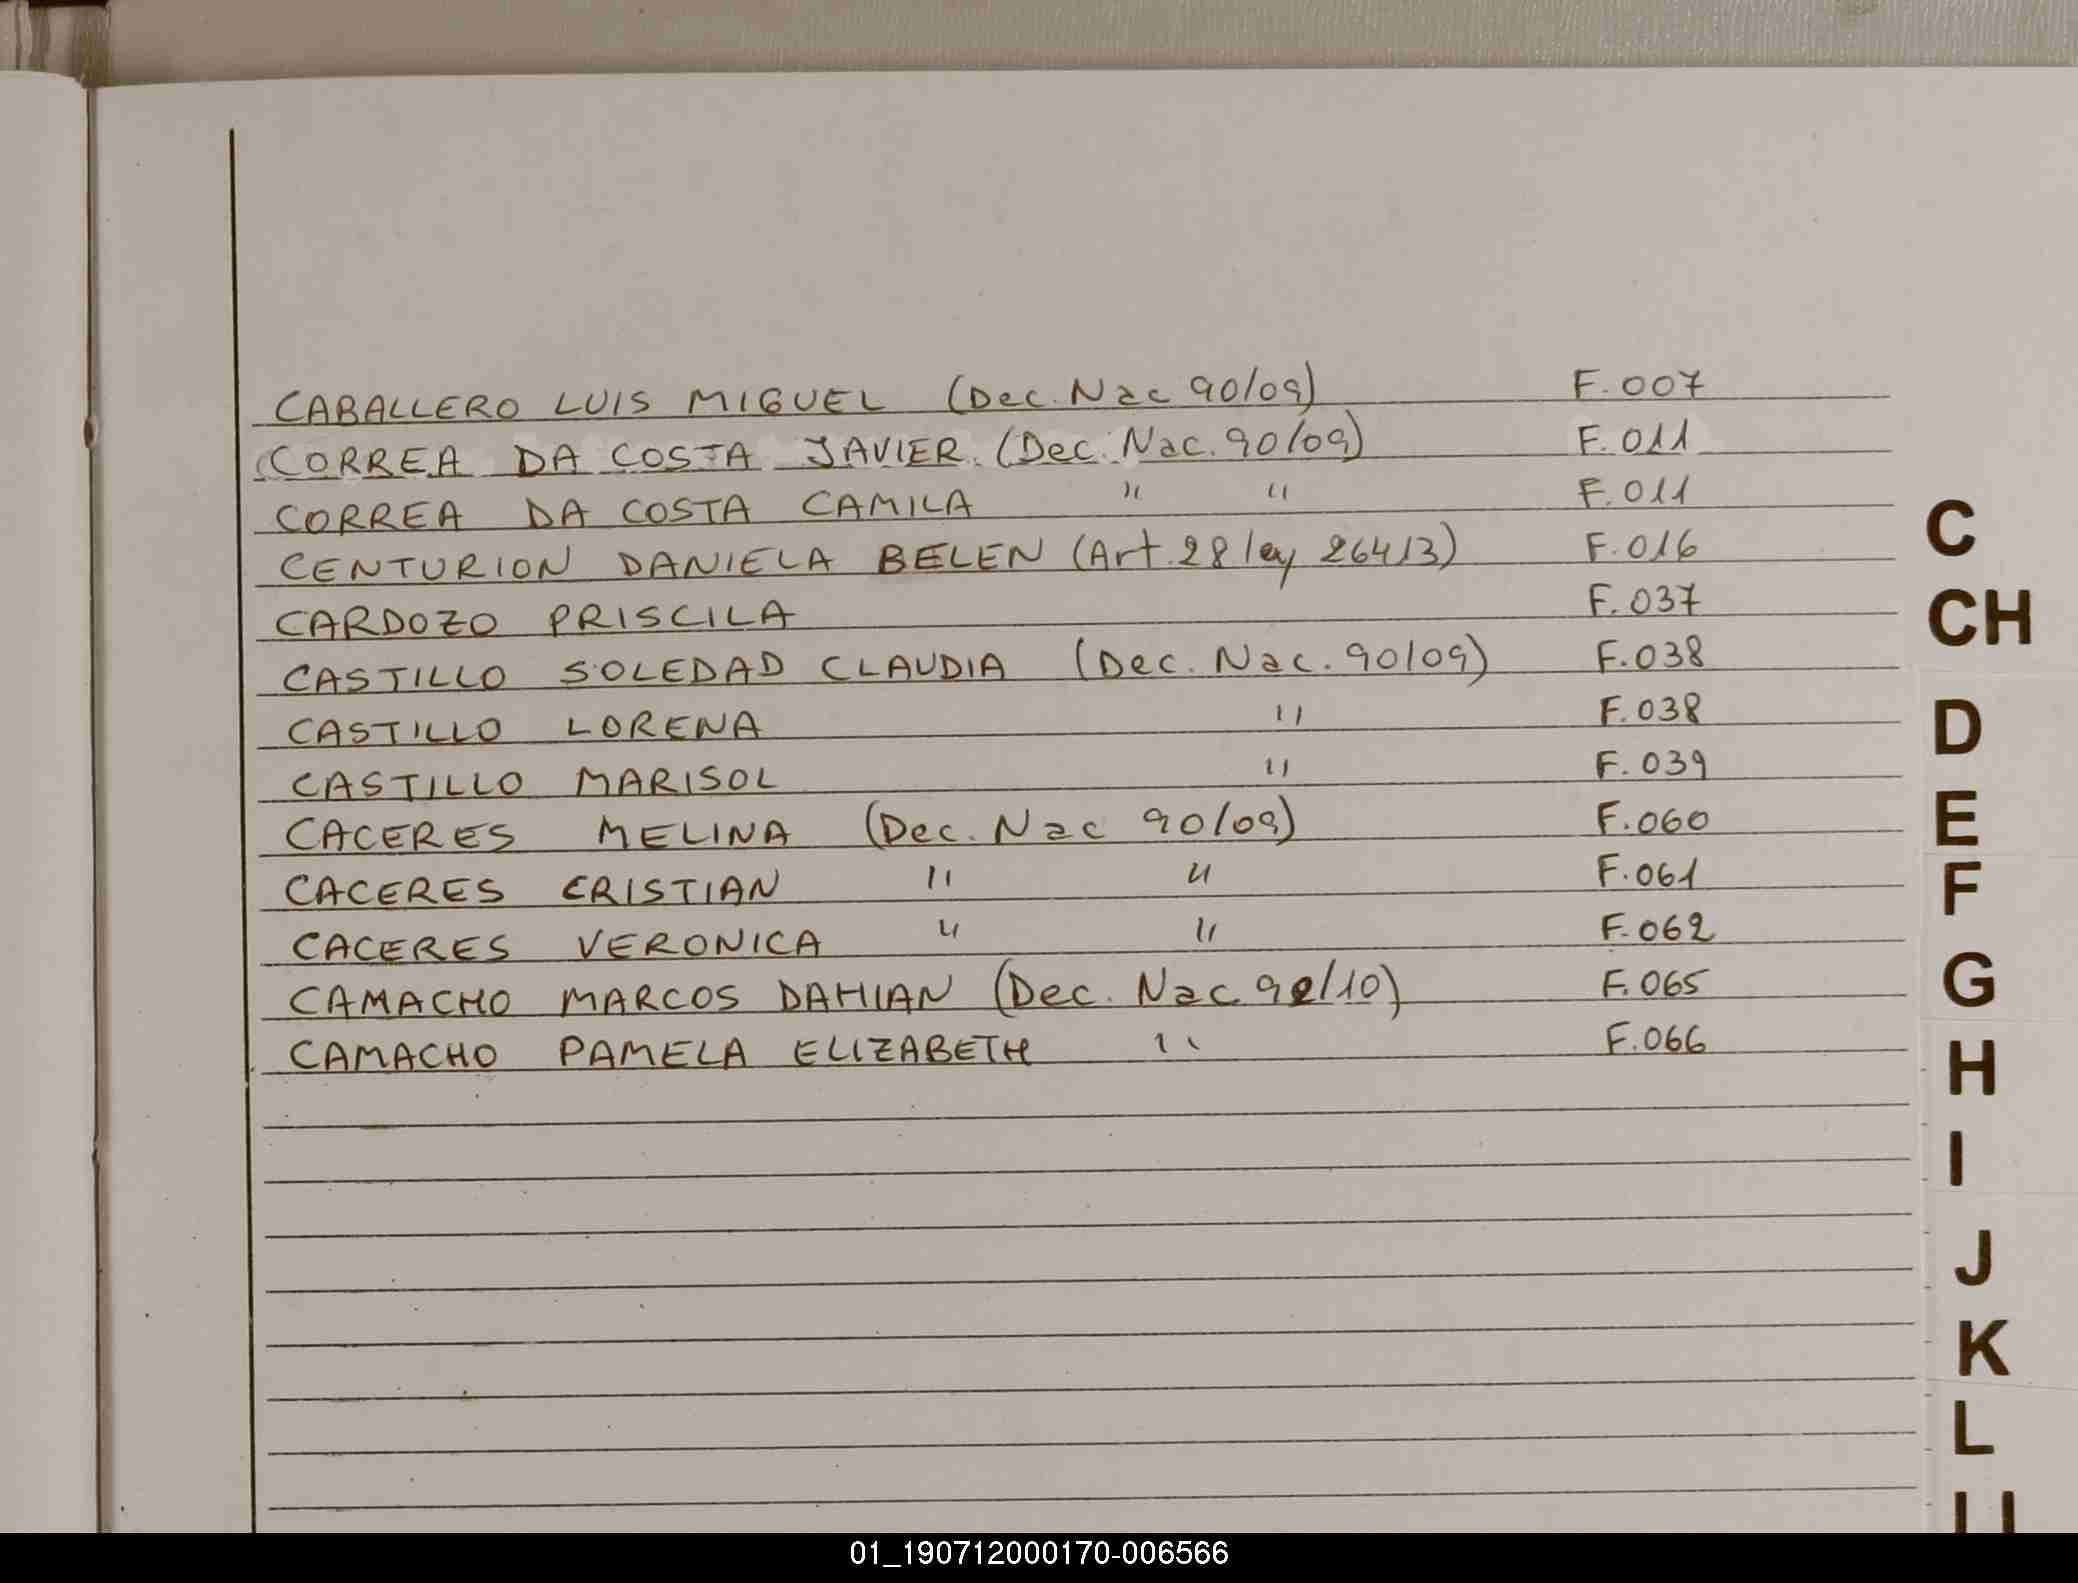 CABALLERO LUIS MIGUEL (Dec. Nac 90/09) F.007
CORREA DA COSTA JAVIER. (Dec. Nac. 90/09) F.011
CORREA DA COSTA CAMILA " " F.011
CENTURION DANIELA BELEN (Art. 28 ley 26413) F.016
CARDOZO PRISCILA F.037
CASTILLO SOLEDAD CLAUDIA (Dec. Nac. 90/09) F.038
CASTILLO LORENA " F.038
CASTILLO MARISOL " F.039
CACERES MELINA (Dec. Nac 90/09) F.060
CACERES CRISTIAN " " F.061
CACERES VERONICA " " F.062
CAMACHO MARCOS DAHIAN (Dec. Nac 92/10) F.065
CAMACHO PAMELA ELIZABETH " F.066
C
CH
D
E
F
G
H
I
J
K
L
01_190712000170-006566